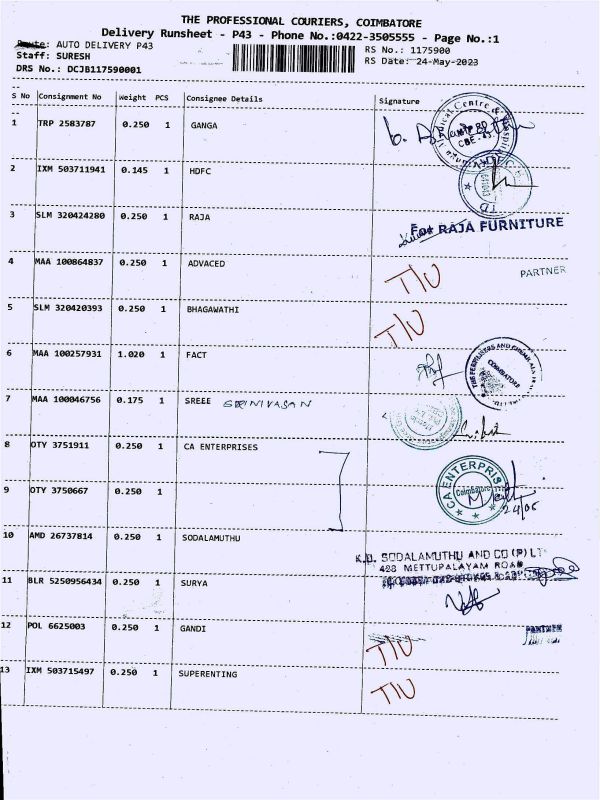 THE PROFESSIONAL COURIERS, COIMBATORE
Delivery Runsheet - P43 - Phone No.:0422-3505555 - Page No.:1
Route: AUTO DELIVERY P43 RS No.: 1175900
Staff: SURESH RS Date: 24-May-2023
DRS No.: DCJB117590001
S No Consignment No Weight PCS Consignee Details Signature
1 TRP 2583787 0.250 1 GANGA
2 IXM 503711941 0.145 1 HDFC
3 SLM 320424280 0.250 1 RAJA
For RAJA FURNITURE
4 MAA 100864837 0.250 1 ADVACED T/U PARTNER
5 SLM 320420393 0.250 1 BHAGAWATHI T/U
6 MAA 100257931 1.020 1 FACT
COIMBATORE
7 MAA 100046756 0.175 1 SREEE SRINIVASAN
8 OTY 3751911 0.250 1 CA ENTERPRISES
CA ENTERPRIS
Coimbatore
9 OTY 3750667 0.250 1
24/05
10 AMD 26737814 0.250 1 SODALAMUTHU
K.O. SODALAMUTHU AND CO (P) LT
428 METTUPALAYAM ROAD
11 BLR 5250956434 0.250 1 SURYA
12 POL 6625003 0.250 1 GANDI T/U PARTNER
13 IXM 503715497 0.250 1 SUPERENTING T/U